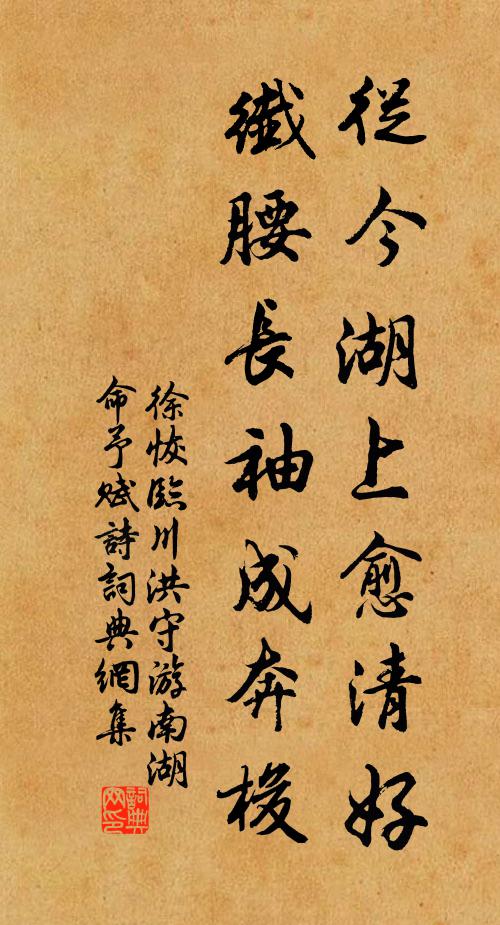 從今湖上愈清好
纖腰長袖成奔梭
徐恢臨川洪守游南湖
命予賦詩詞典網集
詞典網印